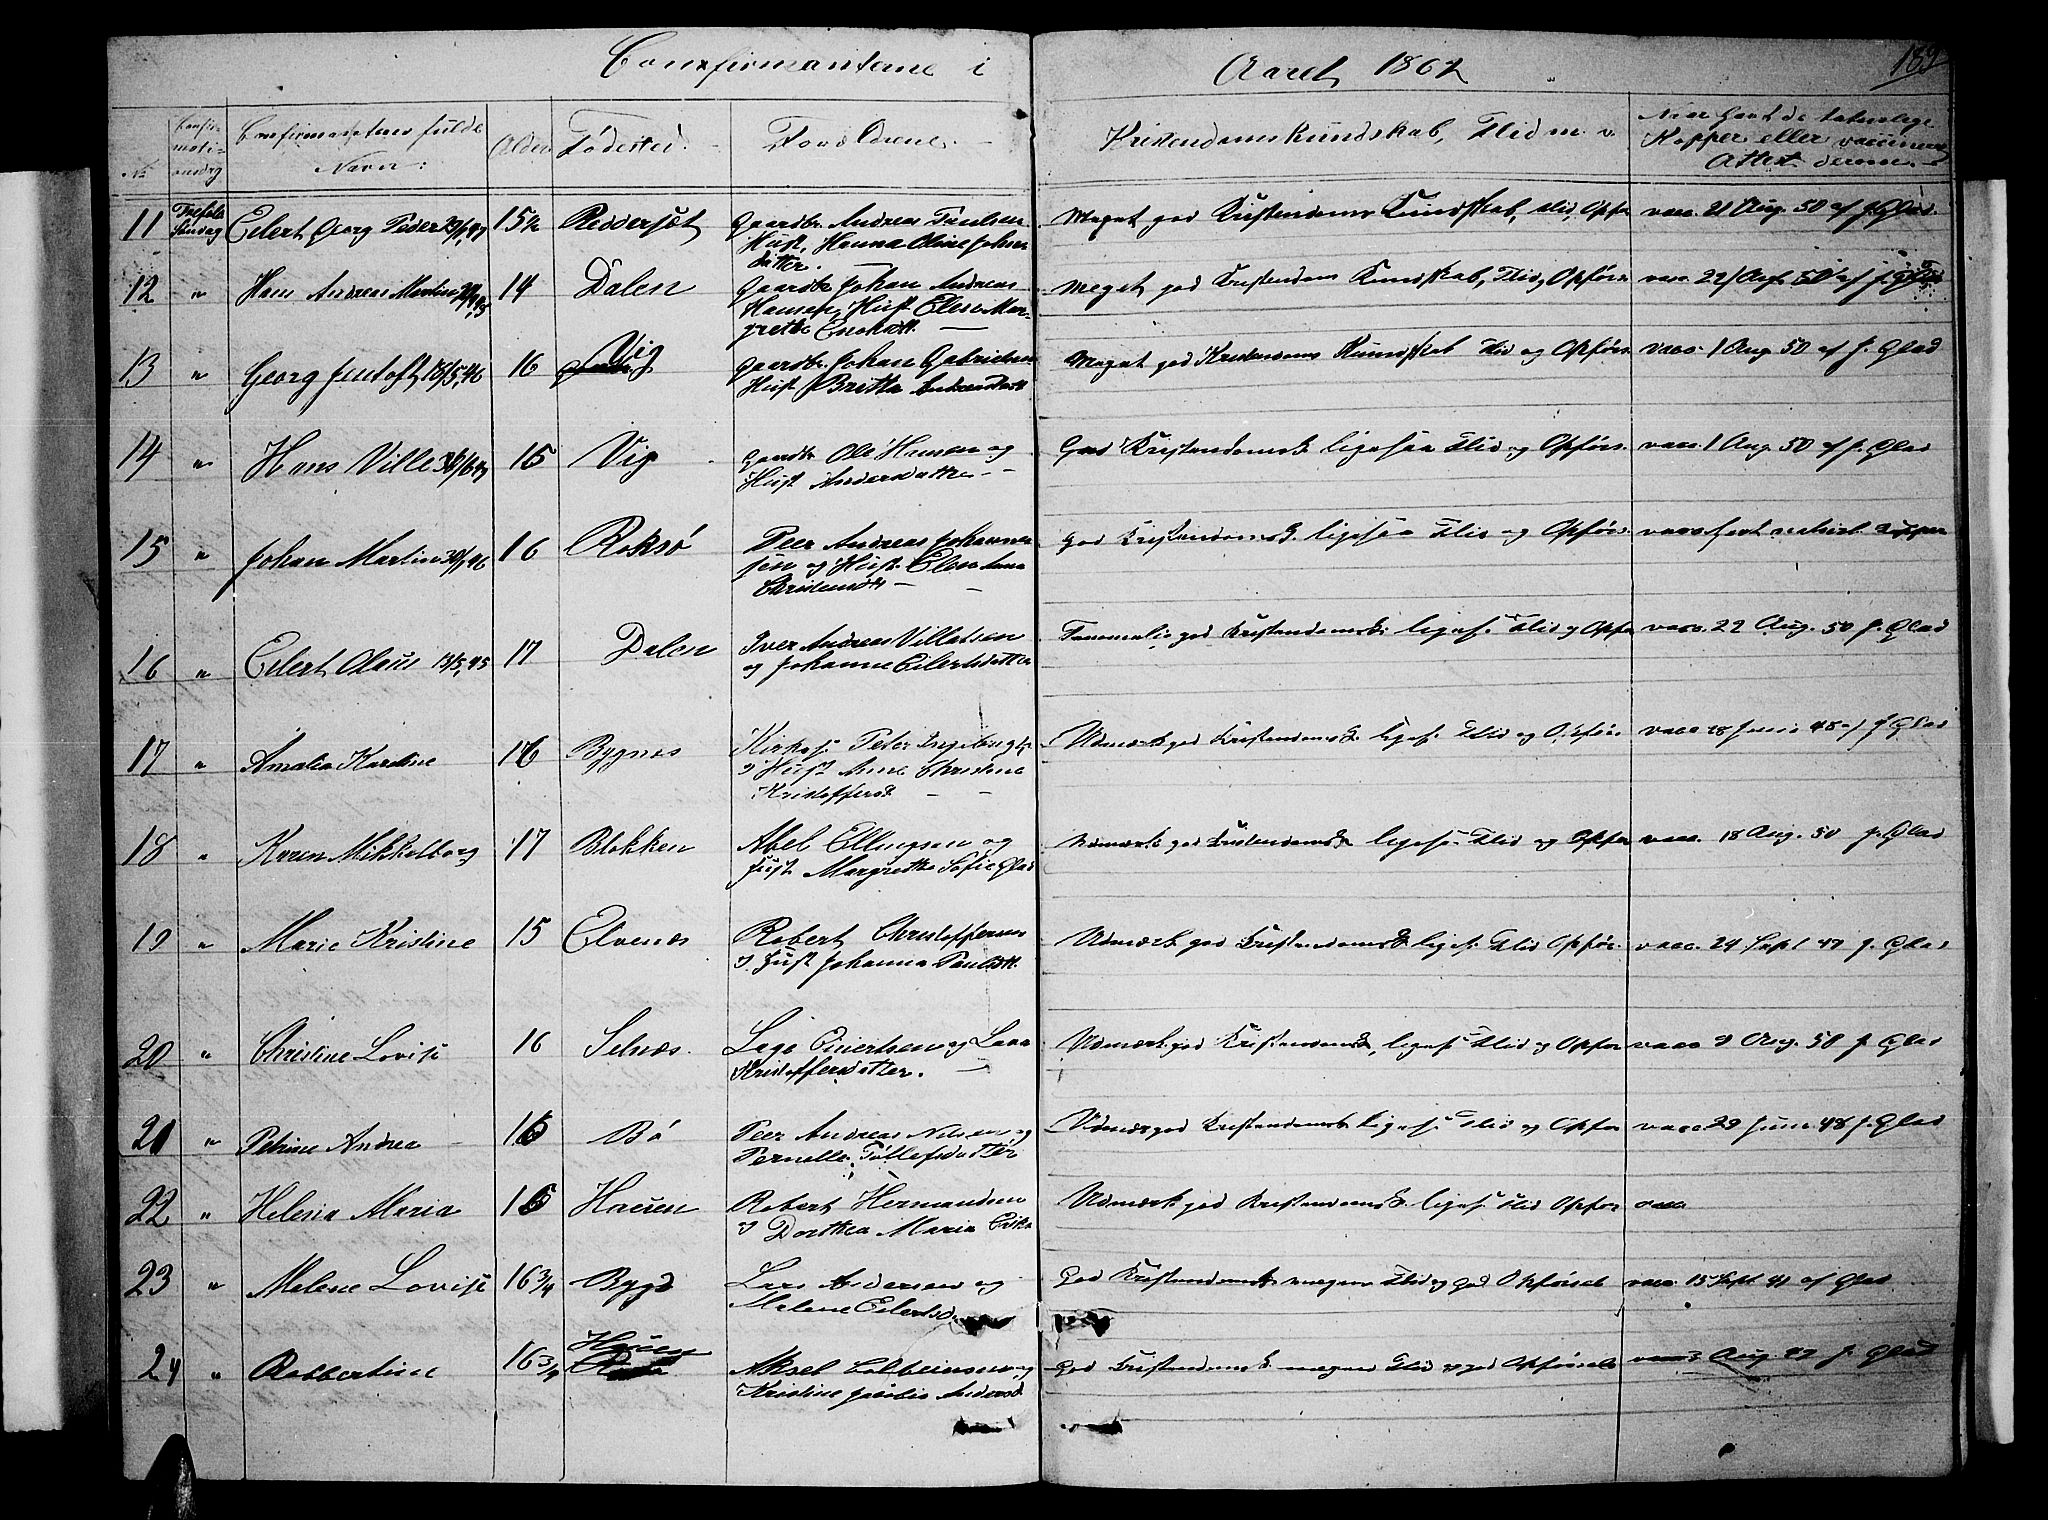 Confirmanterne i Aaret 1862
189
No
Confir-
mati-
onsdag
Confirmanternes fulde
Navn:
Alder
Födested.
Forældrene.
Kristendomskundskab, Flid m. v.
Naar havt de naturlige
Kopper eller vaccineret
Attest derom.
11 Søndag Eilert Georg Peder 15½ Reddersjöt Gaardbr. Andreas Paulsen
Hust. Hanna Oline Johns
datter.
Meget god Kristendoms Kundskab, Flid, Opför vacc. 21 Aug. 50 af J. Glad.
12 " Hans Andreas Martin 14 Dalen Gaardbr. Johan Andreas
Hansen, Hust Elen Mar-
grethe Enoksdtt.
Meget god Kristendoms Kundskab, Flid, Opför. vacc. 22/ 50 af J. Glad
13 " Georg Jentoft 18/5, 46 16 Vig Gaardbr. Johan Gabrielsen
Hust Britta Andreasdatt
Meget god Kristendoms Kundskab Flid og Opför. vacc. 1 Aug. 50 af J. Glad
14 " Hans Ville 15 Vig Gaardbr Ole Hansen og
Hust Andersdatter
God Kristendomsk. ligesaa Flid og Opför. vacc. 1 Aug. 50 af J. Glad
15 " Johan Martin 16 Roksö Peer Andreas Johanne-
sen og Hust. Elen Anna
God Kristendomsk. ligesaa Flid og Opför. havt naturl. Kopper
16 " Eilert Olaus 13/5, 45 17 Dalen Iver Andreas Villatsen
og Johanne Eilertsdatter
god Kristendomsk. liges. Flid og Opför vacc. 22 Aug. 50 J. Glad
17 " Amalia Karoline 16 Bygnes Peter
og Hust Anne Christine
Kristoffersd.
Udmærk god Kristendomsk. liges. Flid og Opför. vacc 28 Juni 48 af J Glad
18 " Karen Mikkelborg 17 Blokken Abel Ellingsen og
Hust Margrethe Sofie Glad
Udmærk god Kristendomsk ligesa Flid og Opför vacc. 18 Aug. 50 J. Glad
19 " Marie Kristine 15 Elvenes Robert Christoffersen
og Hust Johanna Paulsdtt.
Udmærk god Kristendomsk. liges. Flid Opför. vacc. 24 Sept 47 J. Glad
20 " Christine Lovise 16 Selnæs. og
Kristoffersdatter.
Udmærk god Kristendomsk, liges. Flid og Opför vacc 9 Aug. 50 J. Glad
21 " Petrine Andrea 16 Bö Peer Andreas Nilsen og
Pernelle Tollefsdatter
Udmær god Kristendomsk liges. Flid og Opför vacc. 29 Juni 48 J. Glad
22 " Helena Maria 16 Hauen Robert Hermandsen
og Dorthea Maria
Udmærk god Kristendomsk. liges. Flid Opför vacc
23 " Melene Lovise 16 3/4 Bygd Lars Andersen og
Melene Eilertsd.
God Kristendomsk megen Flid og god Opförsel vacc. 15 Sept af Glad
24 " Robbertine 16 3/4 Hauen Aksel og
Kristine Andersd
God Kristendomsk megen Flid og god Opförsel vacc Aug. J. Glad